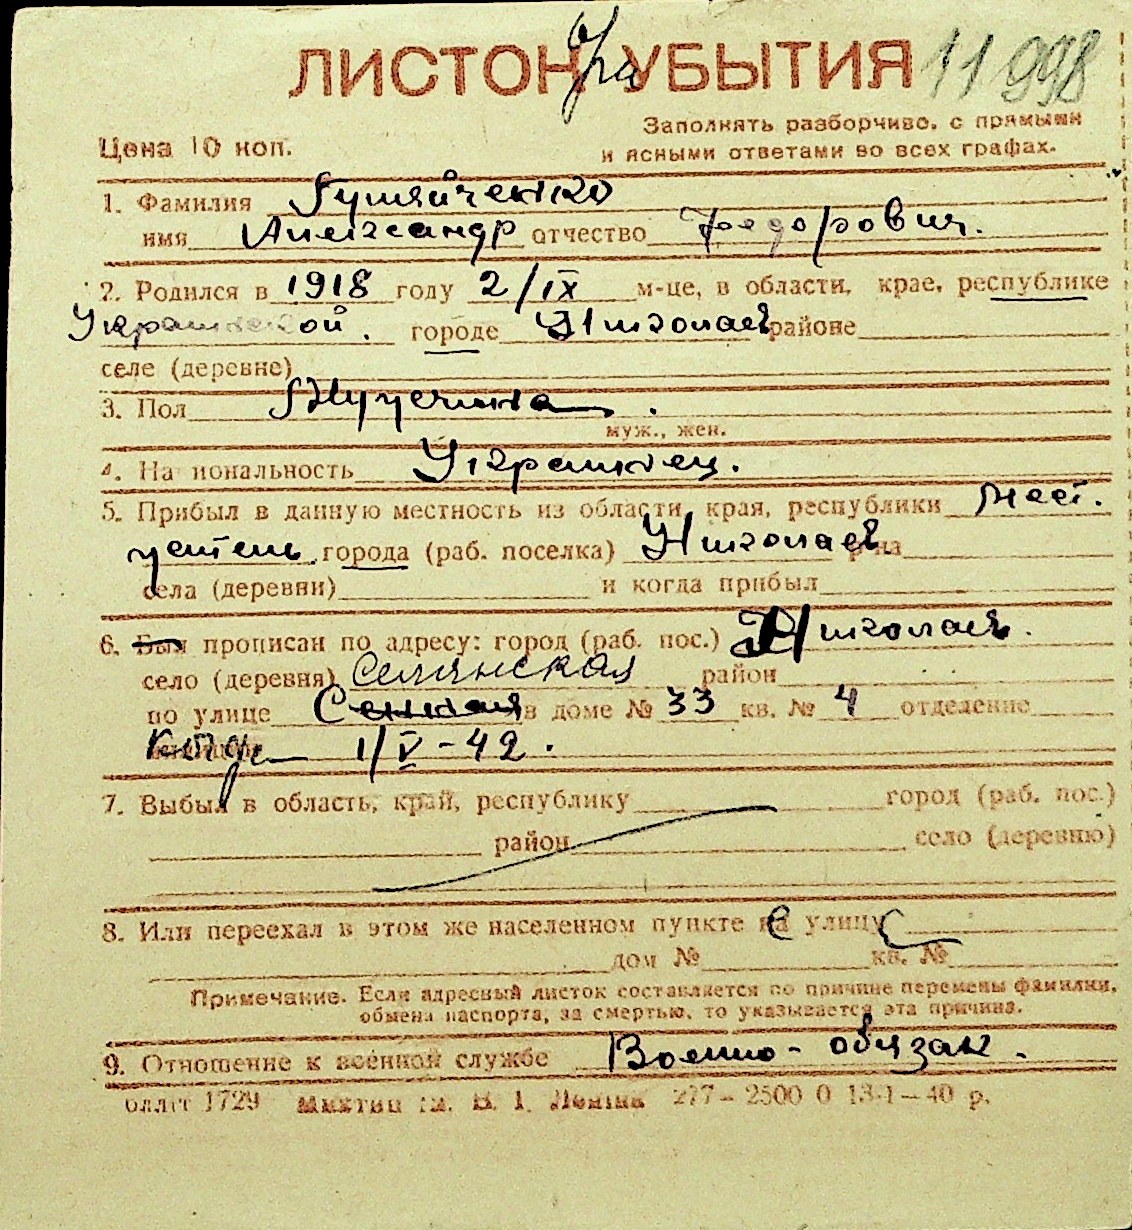 ЛИСТОК УБЫТИЯ 11998
Заполнять разборчиво, с прямыми
Цена 10 коп. и ясными ответами во всех графах.
1. Фамилия
имя Александр отчество Федорович.
2. Родился в 1918 году 2/IX м-це, в области, крае, республике
Украинской. городе Николаев районе
селе (деревне)
3. Пол Мужчина.
муж., жен.
4. Национальность Украинец.
5. Прибыл в данную местность из области, края, республики Мест.
житель. города (раб. поселка) Николаев р-на
села (деревни) и когда прибыл
6. Был прописан по адресу: город (раб. пос.) Николаев.
село (деревня) Селянская район
по улице Сенная в доме № 33 кв. № 4 отделение
милиции 1/V-42.
7. Выбыл в область, край, республику город (раб. пос.)
район село (деревню)
8. Или переехал в этом же населенном пункте на улицу
дом № кв. №
Примечание. Если адресный листок составляется по причине перемены фамилии,
обмена паспорта, за смертью, то указывается эта причина.
9. Отношение к военной службе Военно-обязан.
1729 277-2500 0 13-1-40 р.